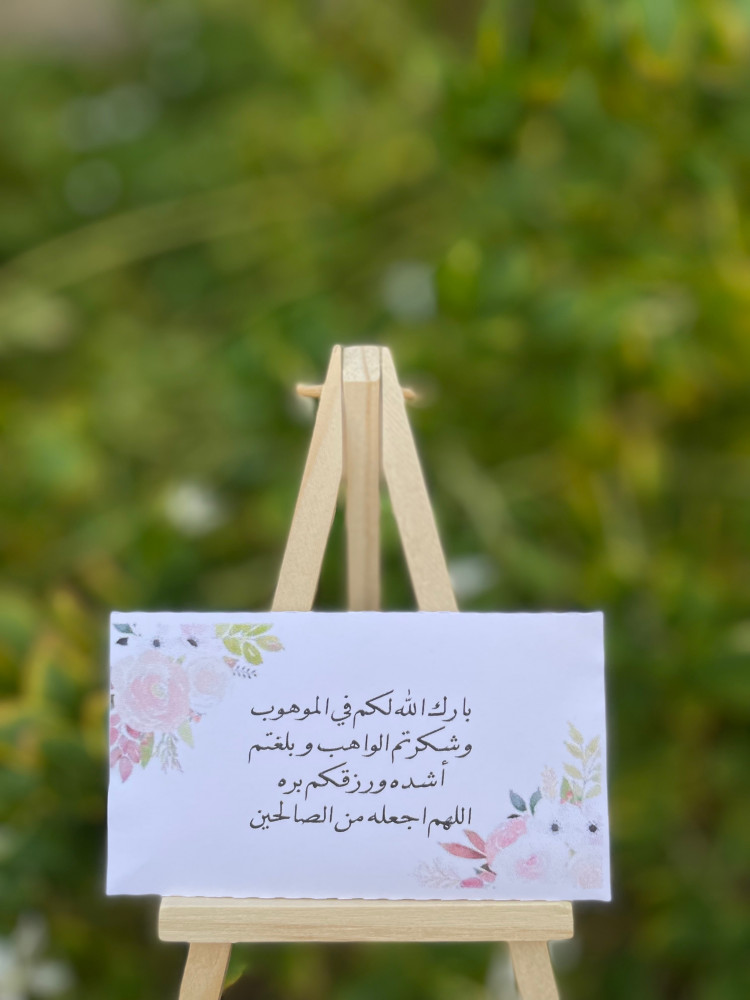 بارك الله لكم في الموهوب
وشكرتم الواهب وبلغتم
أشده ورزقكم بره
اللهم اجعله من الصالحين